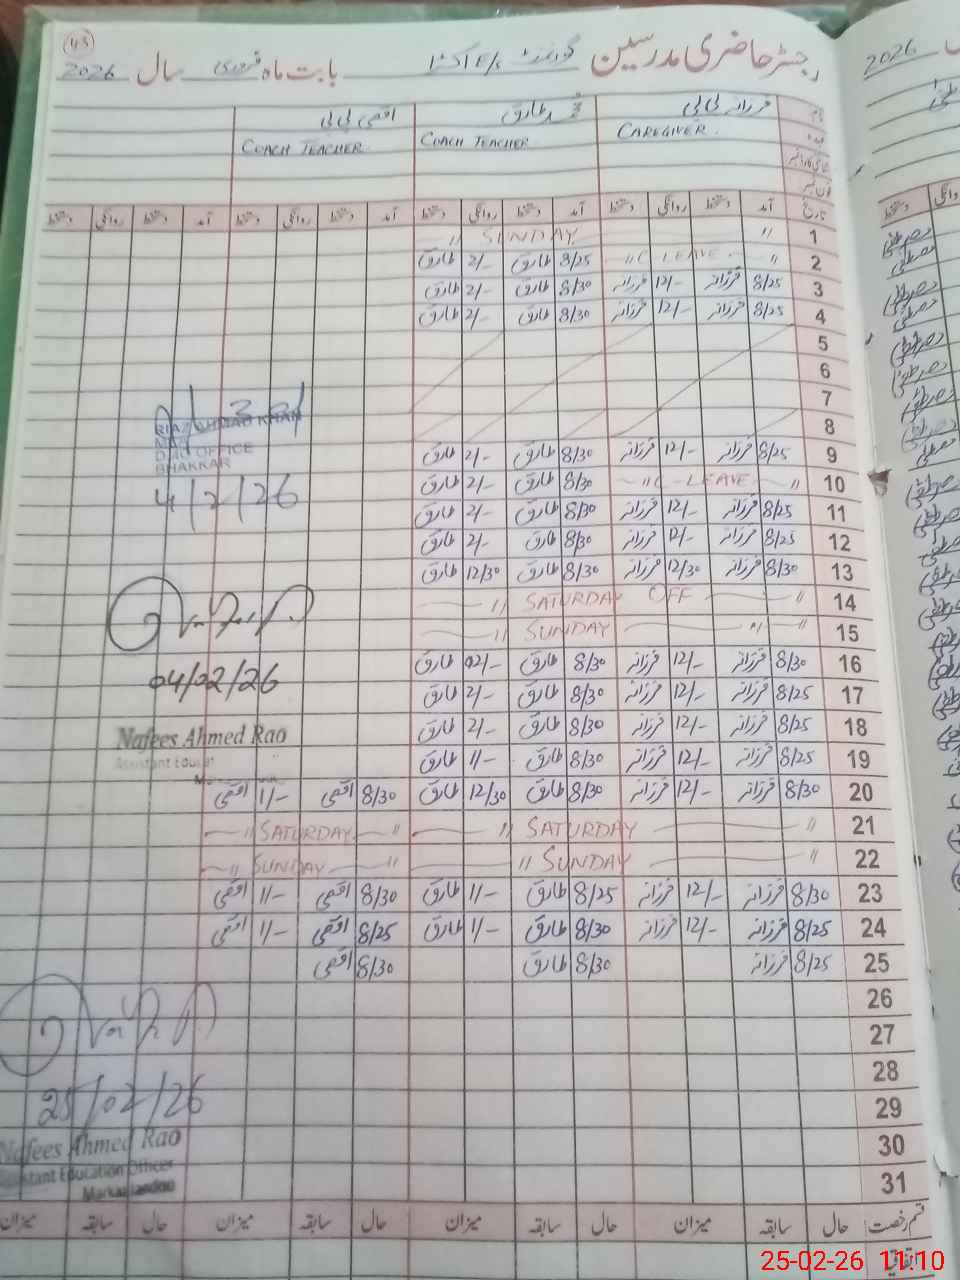 43
رجسٹر حاضری مدرسین گورنمنٹ E/S بابت ماہ فروری سال 2026
نام فرزانہ بی بی محمد طارق اقصیٰ بی بی
عہدہ CAREGIVER. COACH TEACHER. COACH TEACHER.
شناختی کارڈ نمبر
فون نمبر
تاریخ آمد دستخط روانگی دستخط آمد دستخط روانگی دستخط آمد دستخط روانگی دستخط آمد دستخط روانگی دستخط
1 〃 SUNDAY 〃
2 〃 C LEAVE 〃 8/25 طارق 2/- طارق
3 8/25 فرزانہ 12/- فرزانہ 8/30 طارق 2/- طارق
4 8/25 فرزانہ 12/- فرزانہ 8/30 طارق 2/- طارق
5
6
7
8
9 8/25 فرزانہ 12/- فرزانہ 8/30 طارق 2/- طارق
10 〃 C-LEAVE 〃 8/30 طارق 2/- طارق
11 8/25 فرزانہ 12/- فرزانہ 8/30 طارق 2/- طارق
12 8/25 فرزانہ 12/- فرزانہ 8/30 طارق 2/- طارق
13 8/30 فرزانہ 12/30 فرزانہ 8/30 طارق 12/30 طارق
14 〃 SATURDAY OFF 〃
15 〃 SUNDAY 〃
16 8/30 فرزانہ 12/- فرزانہ 8/30 طارق 02/- طارق
17 8/25 فرزانہ 12/- فرزانہ 8/30 طارق 2/- طارق
18 8/25 فرزانہ 12/- فرزانہ 8/30 طارق 2/- طارق
19 8/25 فرزانہ 12/- فرزانہ 8/30 طارق 1/- طارق
20 8/30 فرزانہ 12/- فرزانہ 8/30 طارق 12/30 طارق 8/30 اقصیٰ 1/- اقصیٰ
21 〃 SATURDAY 〃 〃 SATURDAY 〃
22 〃 SUNDAY 〃 〃 SUNDAY 〃
23 8/30 فرزانہ 12/- فرزانہ 8/25 طارق 1/- طارق 8/30 اقصیٰ 1/- اقصیٰ
24 8/25 فرزانہ 12/- فرزانہ 8/30 طارق 1/- طارق 8/25 اقصیٰ 1/- اقصیٰ
25 8/25 فرزانہ 8/30 طارق 8/30 اقصیٰ
26
27
28
29
30
31
قسم رخصت حال سابقہ میزان حال سابقہ میزان حال سابقہ میزان حال سابقہ میزان
اتفاقیہ
RIAZ AHMAD KHAN
OFFICE
BHAKKAR
4/2/26
04/02/26
Nafees Ahmed Rao
Assistant Educat
25/02/26
Nafees Ahmed Rao
Assistant Education Officer
2026
25-02-26 11:10